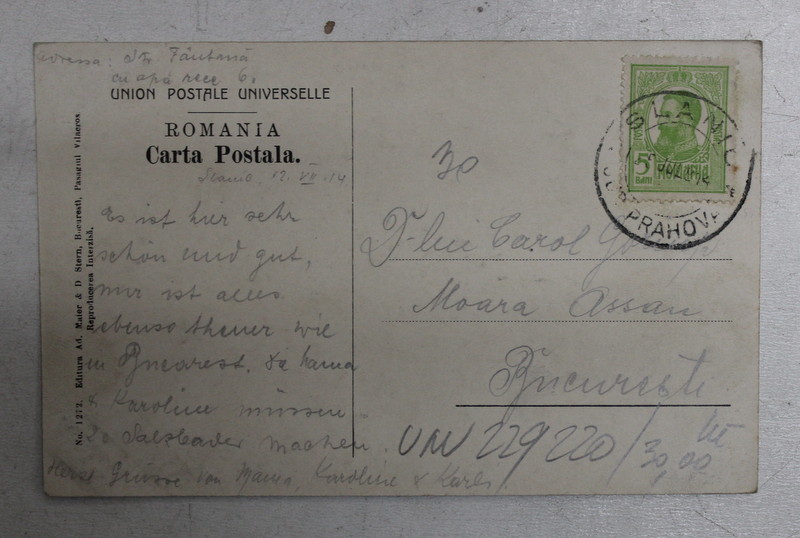 adressa: Str. Fântână
cu apă rece 6.
UNION POSTALE UNIVERSELLE
ROMANIA
Carta Postala.
Slanic, 12. VII. 14
Es ist hier sehr
schön und gut,
nur ist alles
ebenso theuer wie
in Bucarest. Die Mama
& Karoline müssen
20 Salzbäder machen.
Herzl. Grüsse von Mama, Karoline & Karli
No. 1273. Editura Ad. Maier & D. Stern, Bucuresti, Pasagiul Vilacros
Reproducerea Interzisă.
30
D-lui Carol
Moara Assan
Bucureşti
229220 / 30,00
SLANIC
PRAHOVA
5
BANI